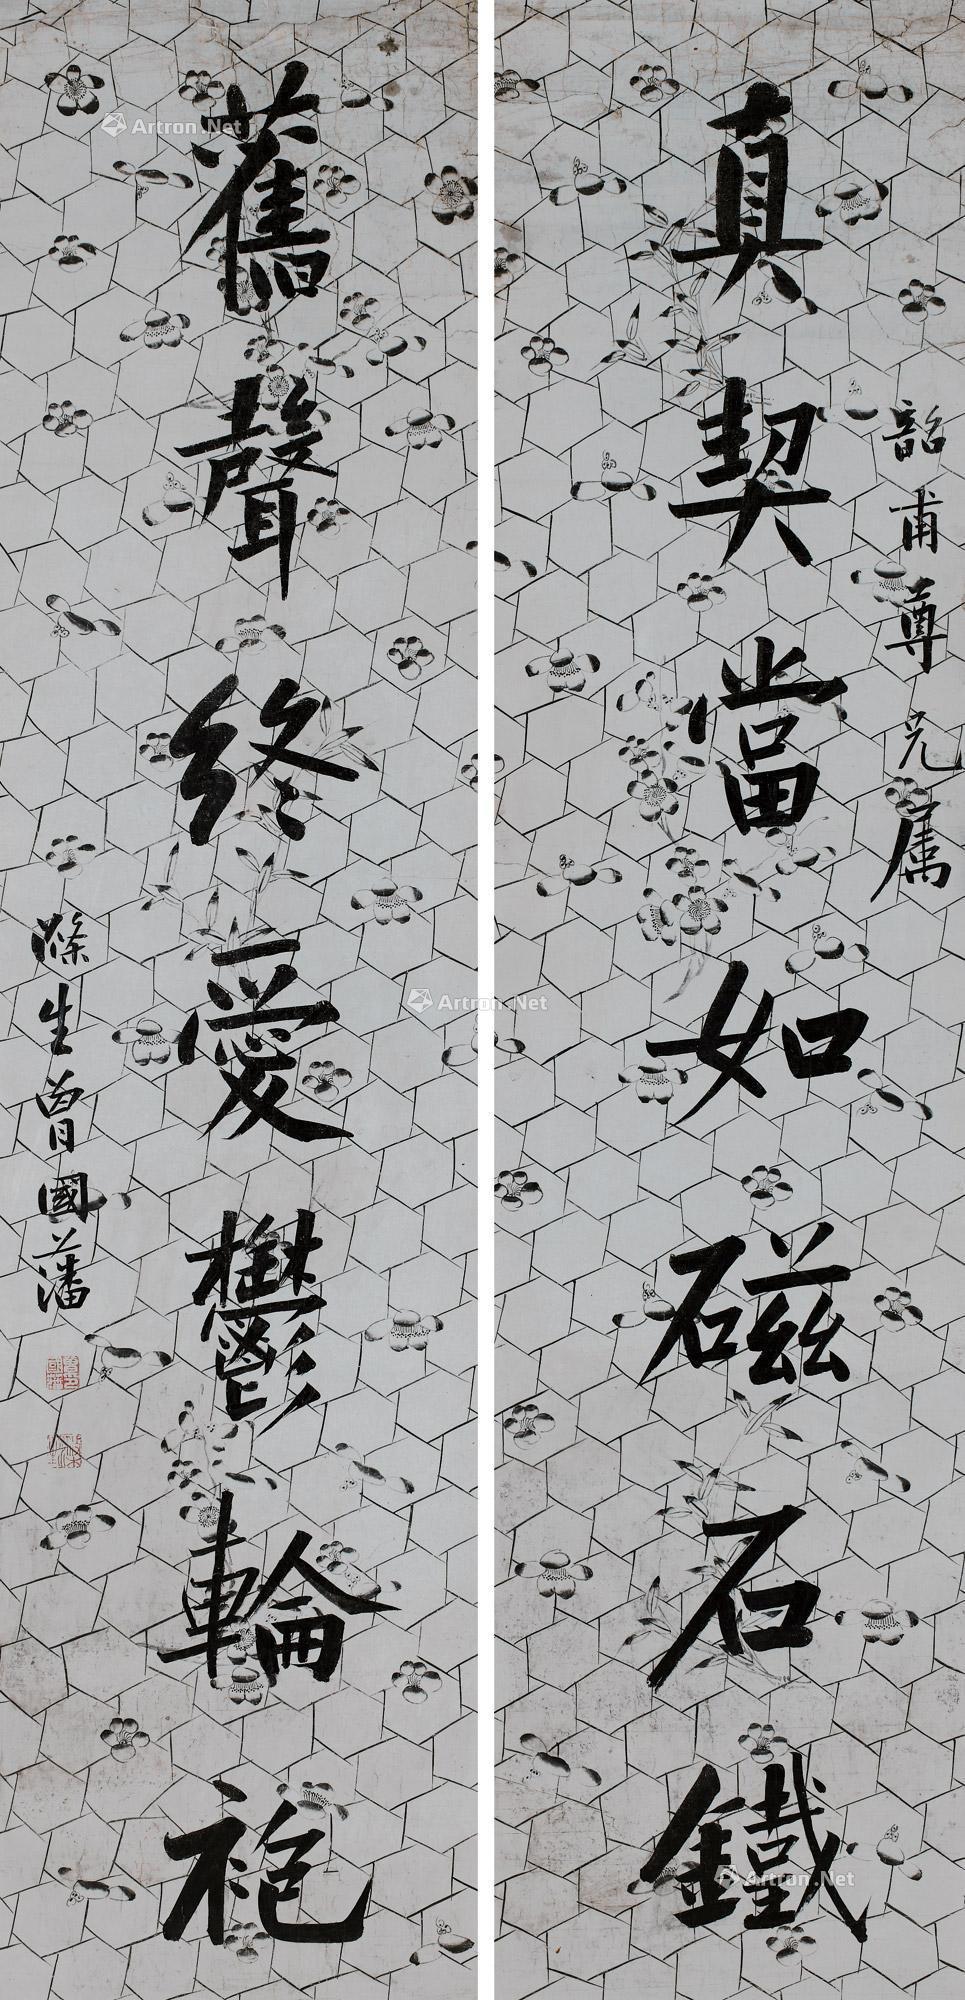 真契當如磁石鐵
韶甫尊兄属
舊聲終愛鬱輪袍
滌生曾國藩
Artron.Net
Artron.Net
Artron.Net